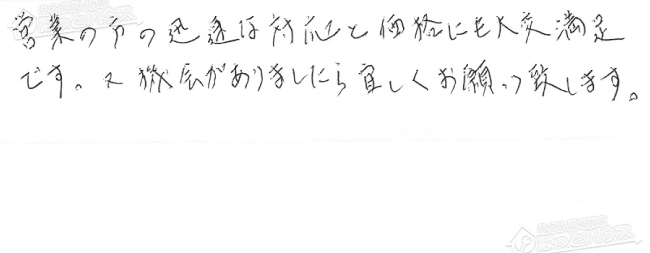 営業の方の迅速な対応と価格にも大変満足
です。又機会がありましたら宜しくお願い致します。